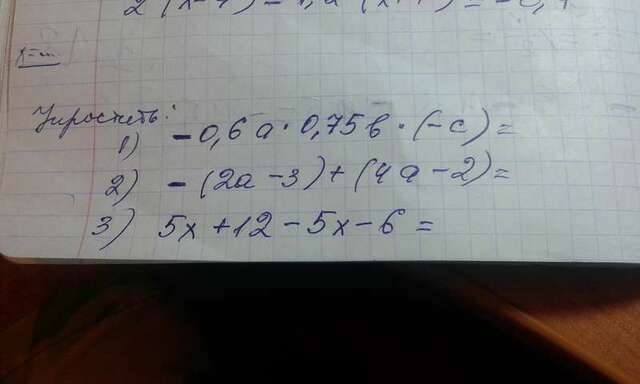 Упростить:
1) -0,6a·0,75в·(-c)=
2) -(2a-3)+(4a-2)=
3) 5x+12-5x-6=